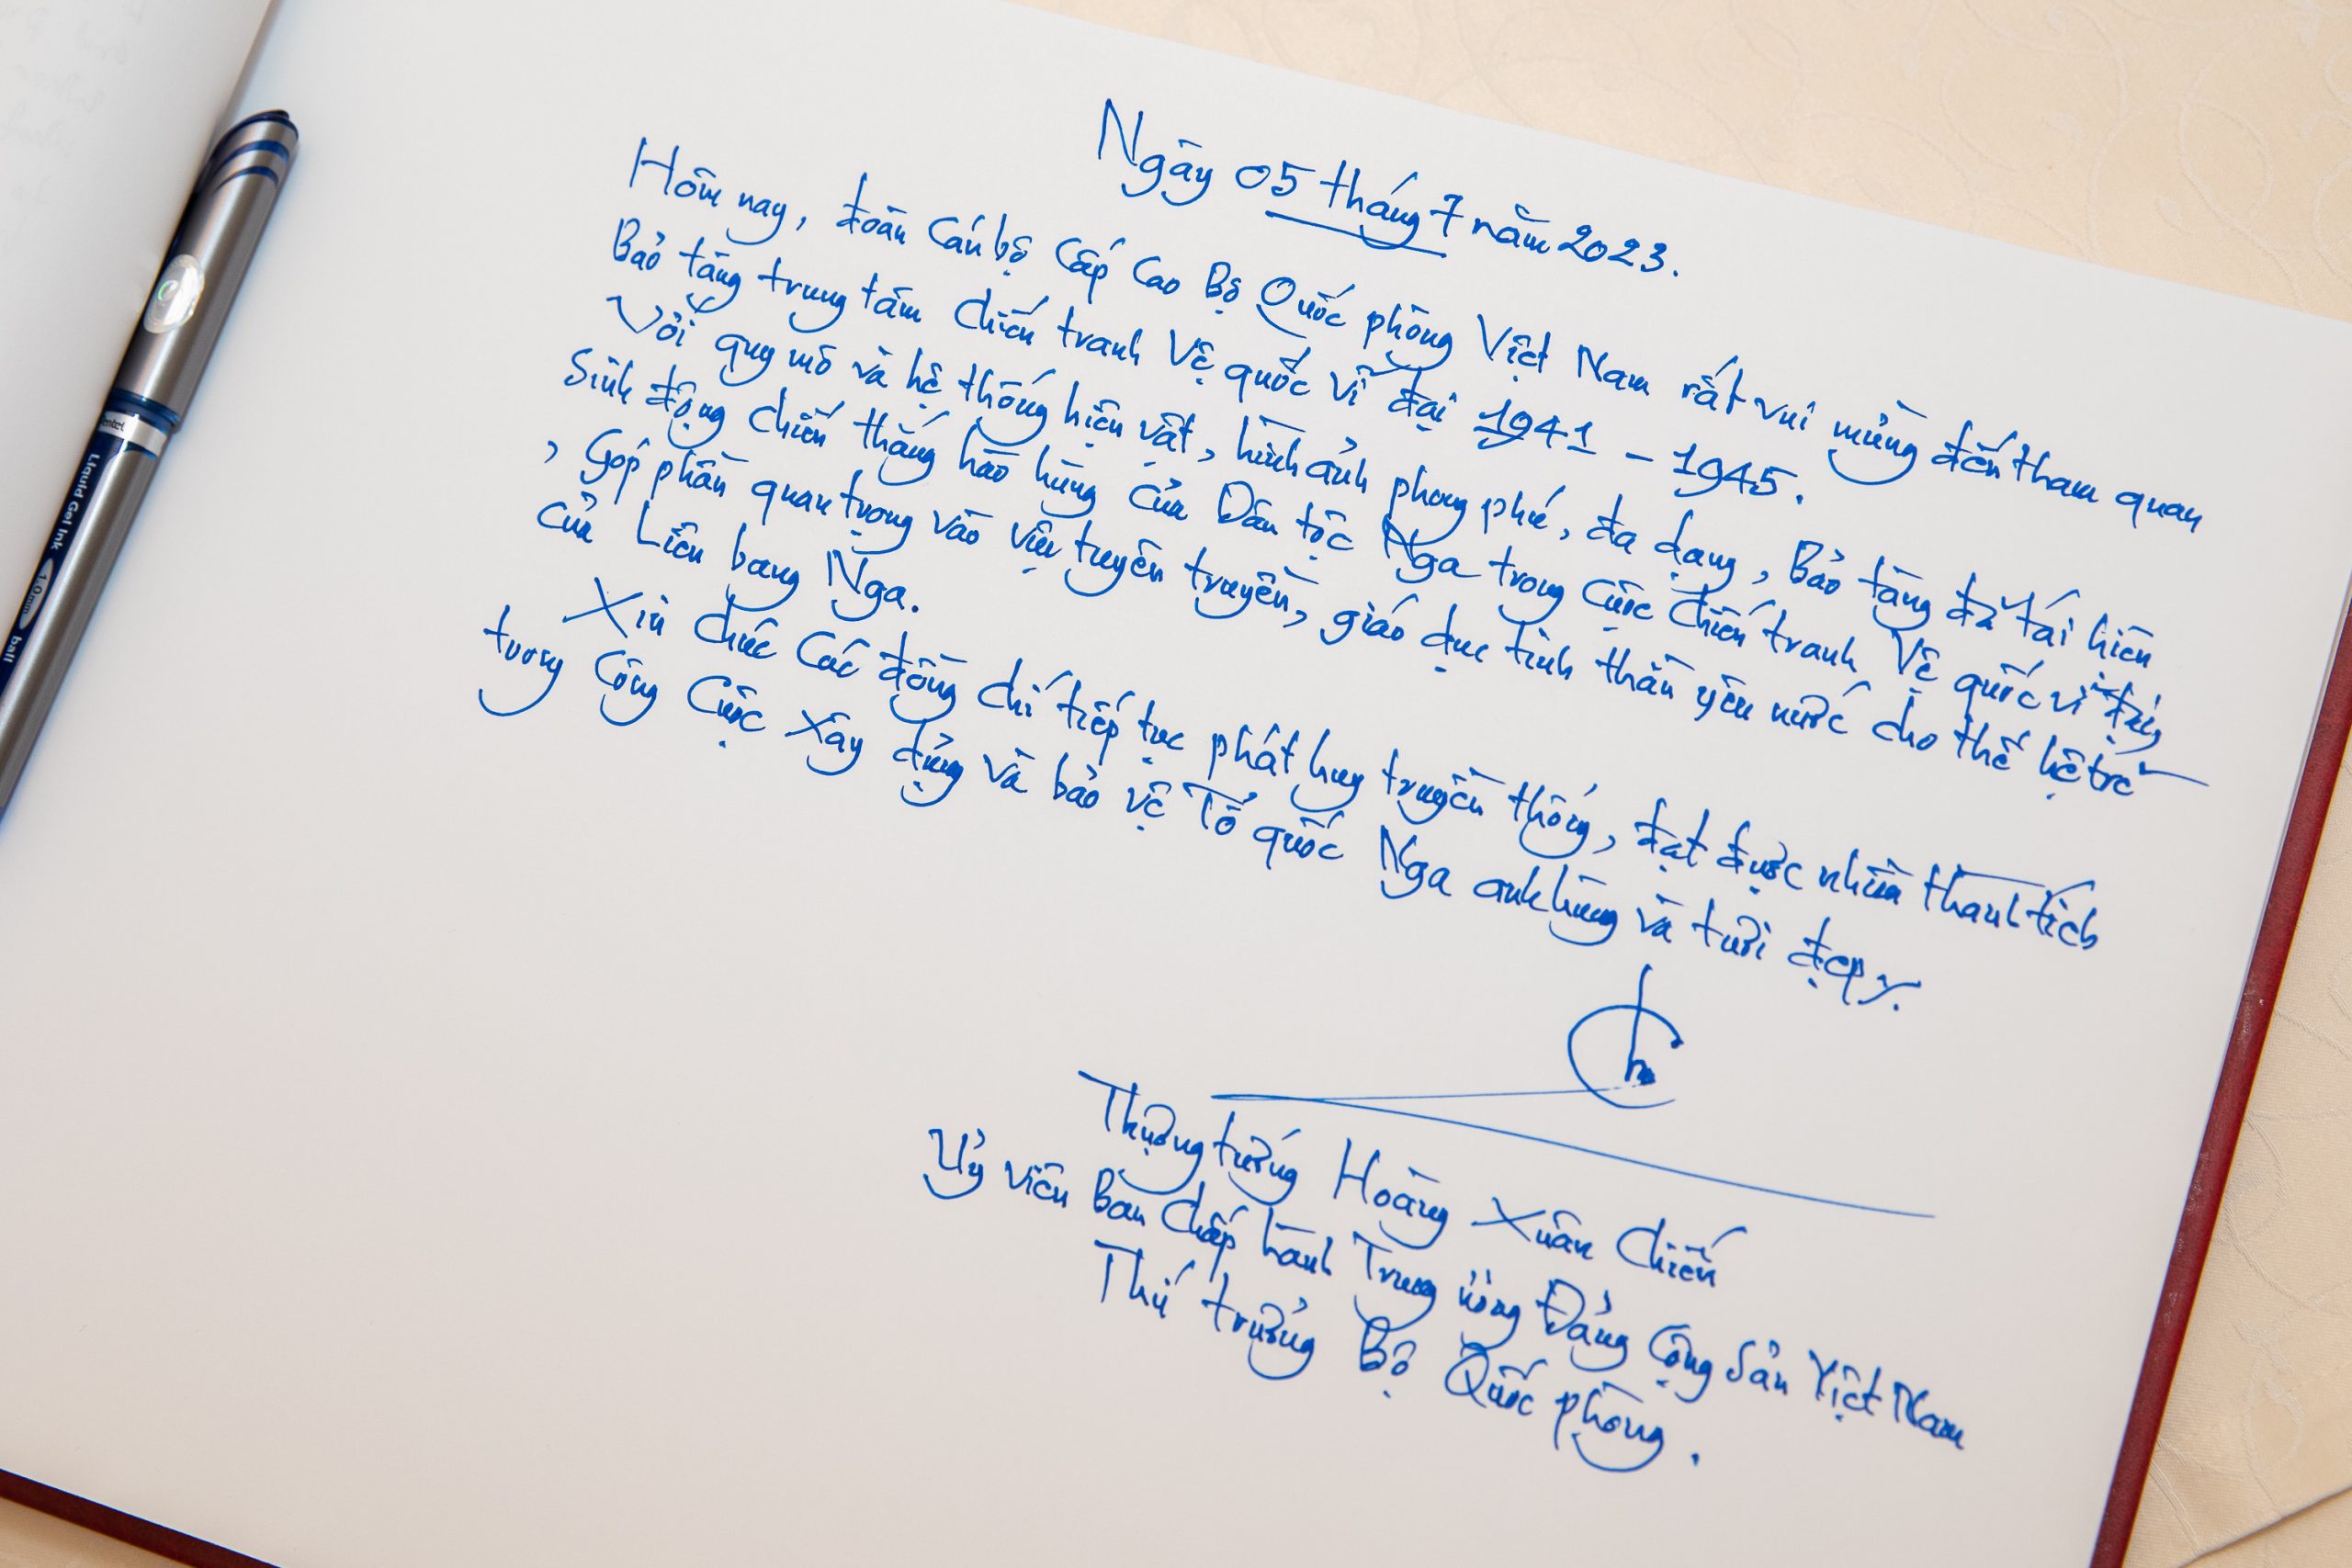 Ngày 05 tháng 7 năm 2023.
Hôm nay, đoàn cán bộ cấp cao Bộ Quốc phòng Việt Nam rất vui mừng đến tham quan
Bảo tàng trung tâm chiến tranh Vệ quốc vĩ đại 1941 - 1945.
Với quy mô và hệ thống hiện vật, hình ảnh phong phú, đa dạng, Bảo tàng đã tái hiện
sinh động chiến thắng hào hùng của Dân tộc Nga trong cuộc chiến tranh Vệ quốc vĩ đại
, góp phần quan trọng vào việc tuyên truyền, giáo dục tinh thần yêu nước cho thế hệ trẻ
của Liên bang Nga.
Xin chúc các đồng chí tiếp tục phát huy truyền thống, đạt được nhiều thành tích
trong công cuộc xây dựng và bảo vệ Tổ quốc Nga anh hùng và tươi đẹp./.
Thượng tướng Hoàng Xuân Chiến
Uỷ viên Ban Chấp hành Trung ương Đảng Cộng sản Việt Nam
Thứ trưởng Bộ Quốc phòng.
Liquid Gel Ink 1.0mm ball